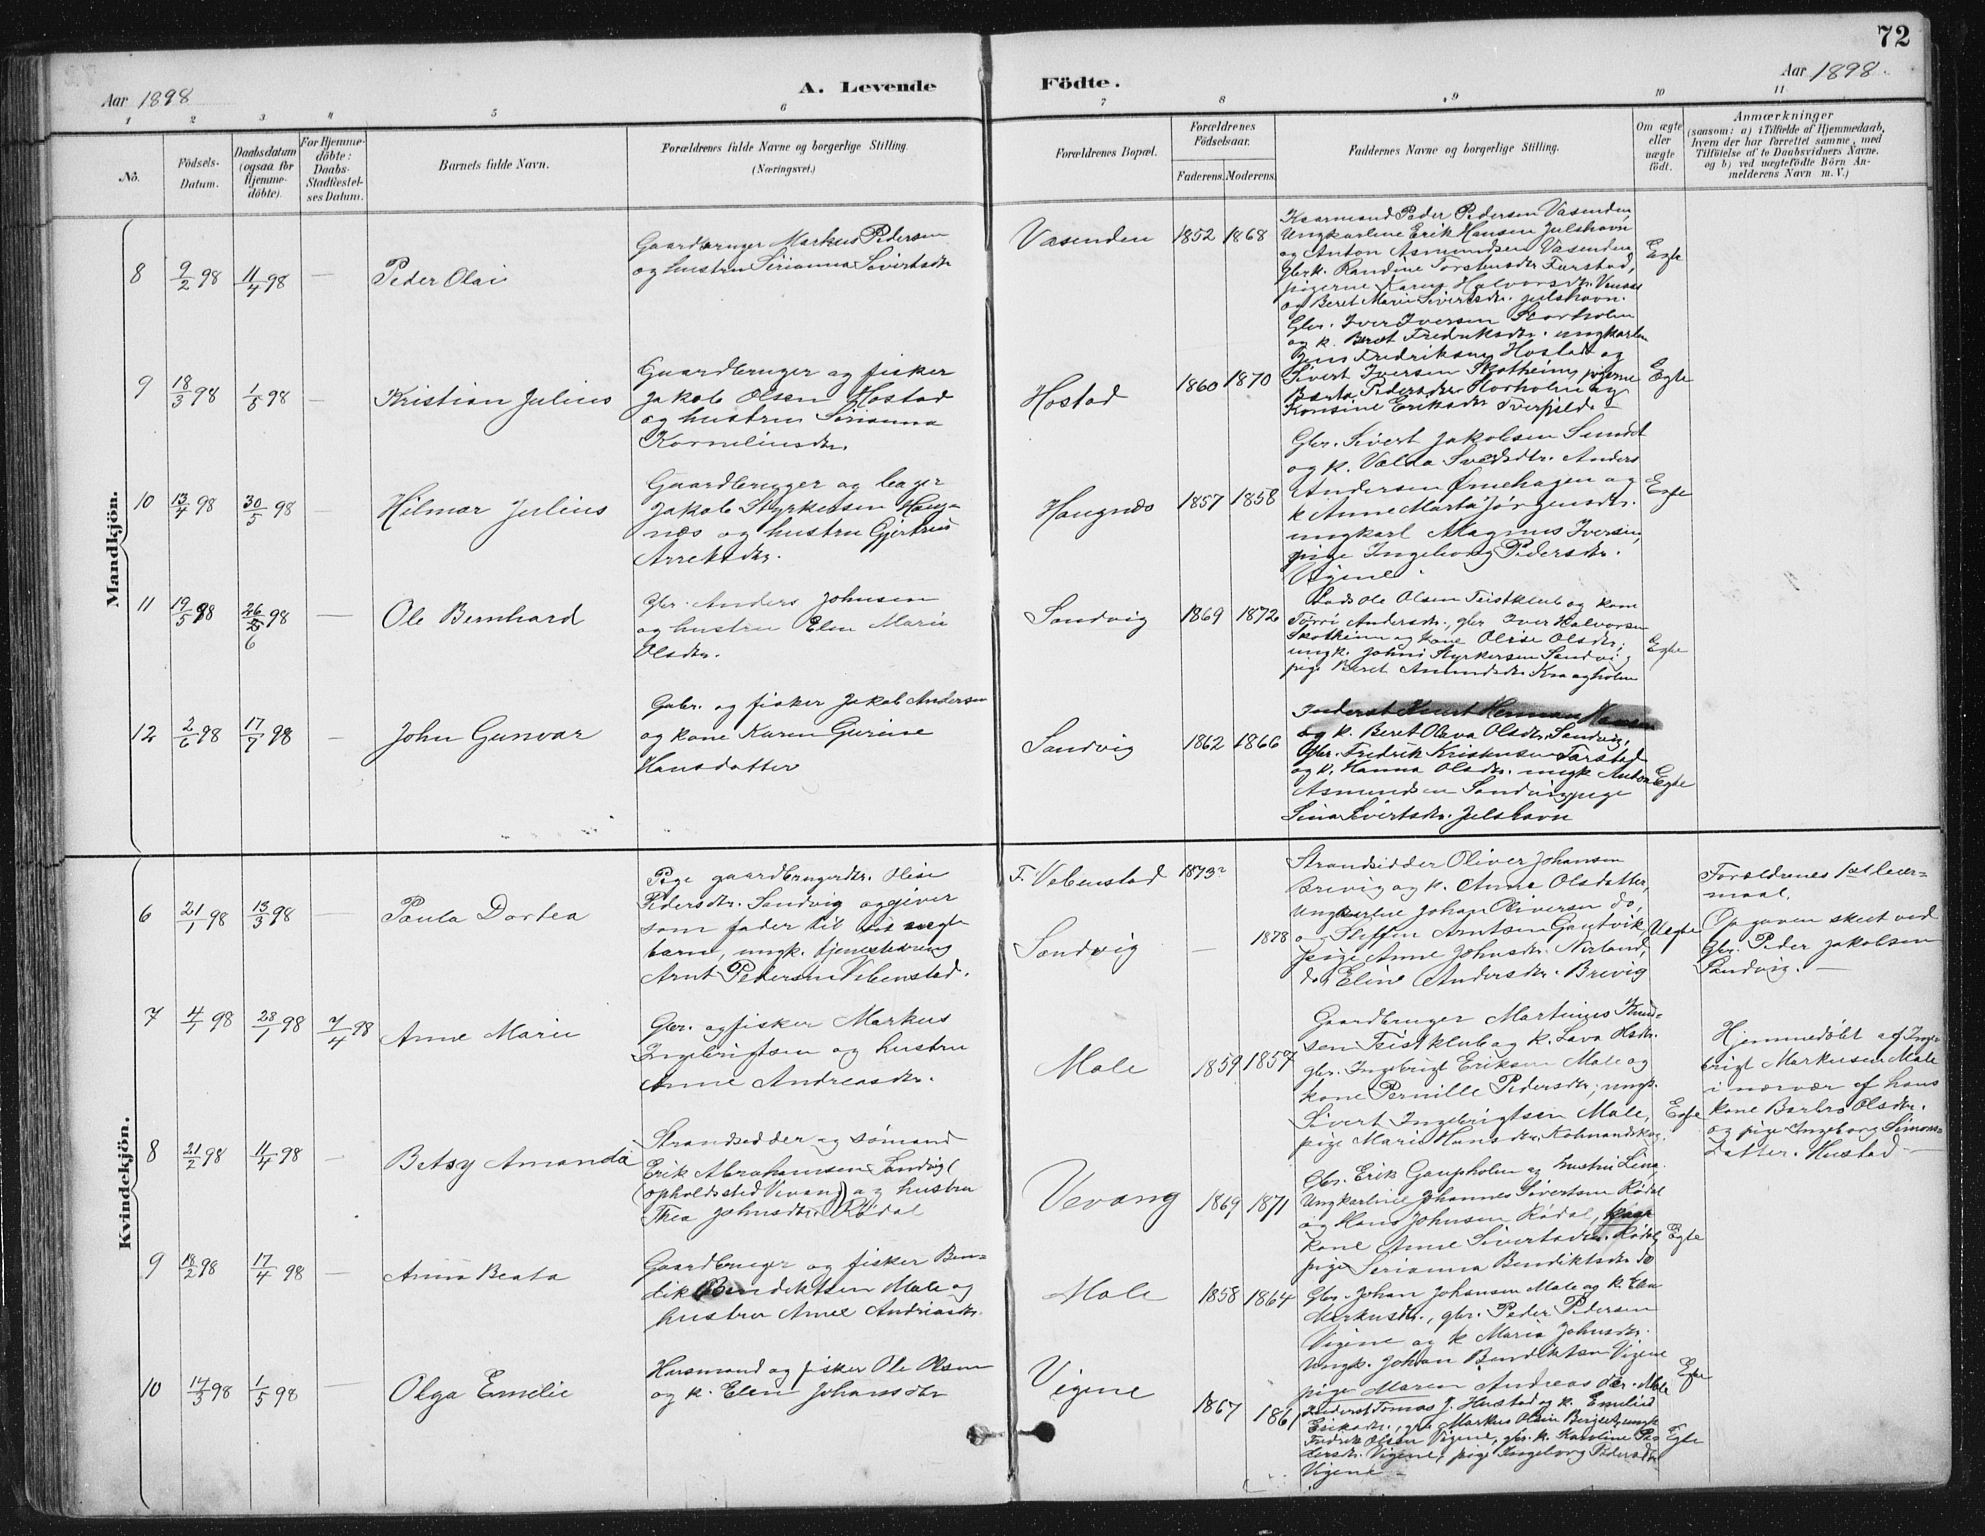 72
Aar 1898
A. Levende
Födte.
Aar 1898.
1 2 3 4 5 6 7 8 9 10 11
No.
Födsels-
Datum.
Daabsdatum
(ogsaa for
Hjemme-
döbte).
For Hjemme-
döbte:
Daabs-
Stadfæstel-
ses Datum.
Barnets fulde Navn.
Forældrenes fulde Navne og borgerlige Stilling.
(Næringsvei.)
Forældrenes Bopæl.
Forældrenes
Födselsaar.
Faderens. Moderens.
Faddernes Navne og borgerlige Stilling.
Om ægte
eller
uægte
födt.
Anmærkninger
(saasom: a) i Tilfælde af Hjemmedaab,
hvem der har forrettet samme, med
Tilföielse af to Daabsvidners Navne.
og b) ved uægtefödte Börn An-
melderens Navn m. V.)
Mandkjön.
8
9/2 98
11/4 98
Peder Olai
Gaardbruger Markus Pedersen
og hustru Sirianna Sivertsdtr
Vasenden
1852 1868
Peder Pedersen Vasenden,
Ungkarlene Erik Hansen Julshavn
og Anton Asmundsen Vasenden
Torstensdtr Farstad,
pigerne Karen Halvorsdtr.
og Beret Marie Sivertsdtr. Julshavn.
Egte
9
18/3 98
1/5 98
Kristian Julius
Gaardbruger og fisker
Jakob Olsen Hostad
og hustru Sirianna
Korneliusdtr.
Hostad
1860 1870
Gbr. Iver Iversen Storholm
og k. Beret Fredriksdtr. ungkarlen
Jens Fredriksen Hostad og
Sivert Iversen Skotheim, pigerne
Pedersdtr. Storholm og
Eriksdtr Tverfjeld
Egte
10
13/4 98
30/5 98
Hilmar Julius
Gaardbruger og
Jakob Styrkersen Haug-
næs og hustru Gjertrud
Haugnæs
1857 1858
Gbr. Sivert Jakobsen Sundt
og k. Anders
Andersen Ørnehagen og
k Anne Marta Jørgensdtr.
ungkarl Magnus Iversen,
pige Ingeborg Pedersdtr.
Vigene
Egte
11
19/5 98
26/6 98
Ole Bernhard
Gbr. Anders Johnsen
og hustru Elen Marie
Olsdtr.
Sandvig
1869 1872
Ole Olsen Teistklub og kone
Andersdtr., gbr Iver Halvorsen
Skotheim og kone Olise Olsdtr,
ungk. Johan Styrkersen Sandvig
pige Beret Amundsdtr Kraagholm
Egte
12
2/6 98
17/7 98
John Gunvar
Gabr. og fisker Jakob Andersen
og kone Karen Gurine
Hansdatter
Sandvig
1862 1866
Inderst Knut Herman Hansen
og k. Beret Oleva Olsdtr. Sandvig,
Gbr. Fredrik Kristensen Farstad
og k. Hanna Olsdtr. ungk Anton
Asmundsen Sandvig, pige
Sina Sivertsdtr. Julshavn
Egte
Kvindekjön.
6
21/1 98
13/3 98
Paula Dortea
Pige gaardbrugerdtr. Olise
Pedersdtr. Sandvig opgiver
som fader til sit uegte
barn, ungk. tjenestedreng
Arnt Pedersen Vebenstad.
F. Vebenstad 1873
Sandvig
— 1878
Strandsidder Oliver Johansen
Brevig og k. Anna Olsdatter,
Ungkarlene Johan Oliversen do,
og Steffen Arntsen Gautvik,
pige Anne Johnsdtr. Nerland,
do Eline Andersdtr. Brevig
Uegte
Forældrenes 1ste leier-
maal.
Opgaven skeet ved
Gbr. Peder Jakobsen
Sandvig. —
7
4/1 98
28/1 98
7/4 98
Anne Marie
Gbr. og fisker Markus
Ingebrigtsen og hustru
Anne Andreasdtr.
Male
1859 1857
Gaardbruger Martinus Knud-
sen Teistklub og k. Lava Olsdtr.
gbr. Ingebrigt Eriksen Male og
kone Pernille Pedersdtr; ungk.
Sivert Ingebrigtsen Male,
pige Marie Hansdtr.
Egte
Hjemmedöbt af Inge-
brigt Markusen Male
i nærvær af hans
kone Barbro Olsdtr.
og pige Ingeborg Simons-
datter. Hustad —
8
21/2 98
11/4 98
Betsy Amanda
Strandsidder og sömand
Erik Abrahamsen Sandvig
(opholdssted Vevang) og hustru
Thea Johnsdtr. Rödal
Vevang
1869 1871
Gbr. Erik Gaupholm og hustru Lina.
Ungkarlene Johannes Sivertsen Rödal
og Hans Johnsen Rödal,
kone Anne Sivertsdtr. Rödal
pige Serianna Bendiktsdtr do
Egte
9
18/2 98
17/4 98
Anna Beata
Gaardbruger og fisker Ben-
dik Bendiktsen Male og
hustru Anne Andreasdtr.
Male
1858 1864
Gbr. Johan Johansen Male og k. Elen
Markusdtr., gbr. Peder Pedersen
Vigene og k Maria Johnsdtr.
Ungk. Johan Bendiktsen Vigene
pige Maren Andreasdtr. Male
Egte
10
14/3 98
1/5 98
Olga Emelie
Husmand og fisker Ole Olsen
og k. Elen Johansdtr
Vigene
1867 1861
Inderst Tomas J. Hustad og k. Emelie
Eriksdtr., gbr Markus Olsen ungk
Fredrik Olsen Vigene, gbr. k. Karoline Pe-
dersdtr. Vigene, pige Ingeborg Pedersdtr
Vigene —
Egte